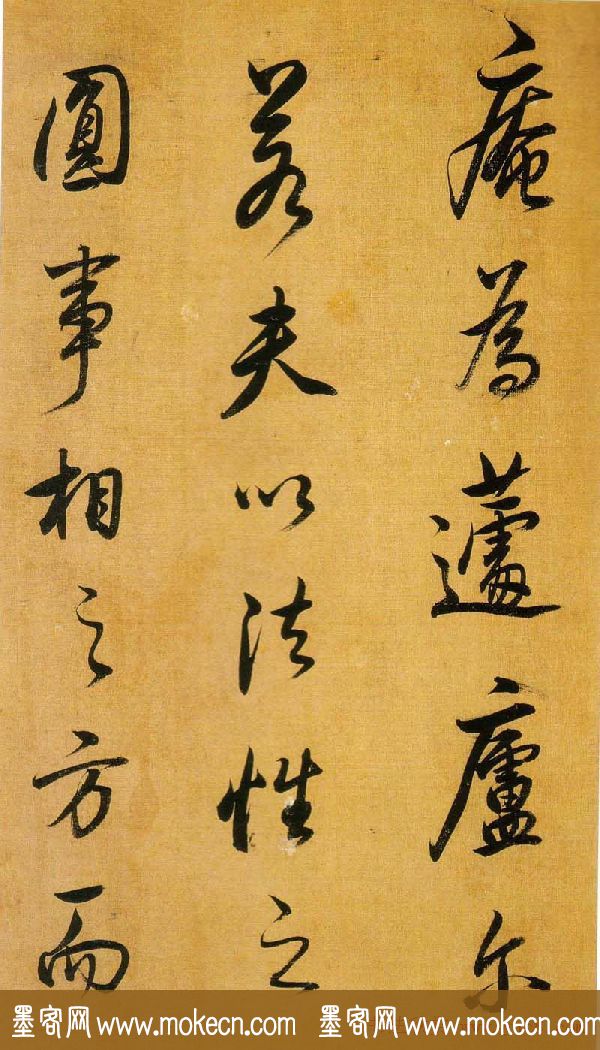 庵為蘧廬尔
若夫以法性之
圓事相之方而
墨客网 www.mokecn.com 墨客网 www.mokecn.com